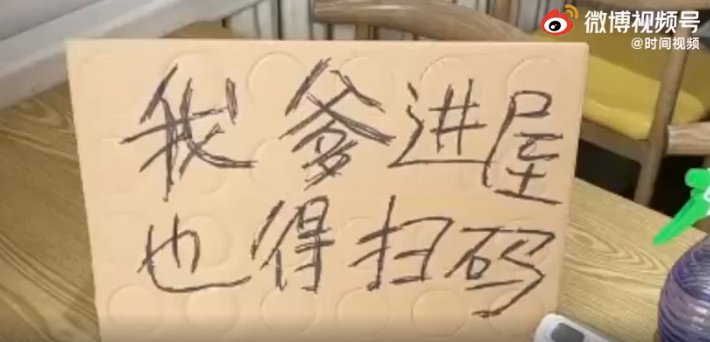 微博视频号
@时间视频
我爹进屋
也得扫码